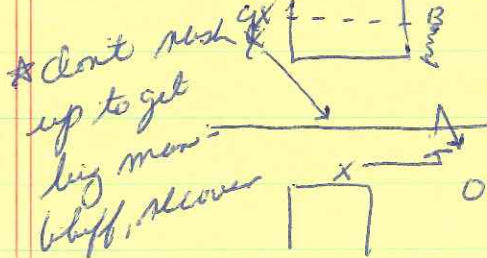 * don't rush
up to get
big man -
bluff, recover
X
X
O